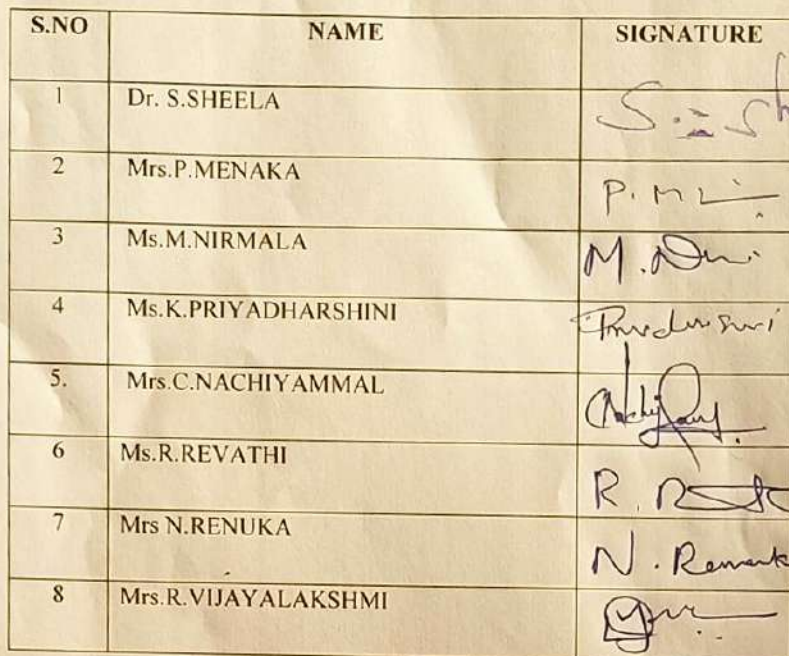 S.NO NAME SIGNATURE
1 Dr. S.SHEELA S. Sh
2 Mrs.P.MENAKA P. M
3 Ms.M.NIRMALA M.
4 Ms.K.PRIYADHARSHINI
5. Mrs.C.NACHIYAMMAL
6 Ms.R.REVATHI R.
7 Mrs N.RENUKA N.
8 Mrs.R.VIJAYALAKSHMI